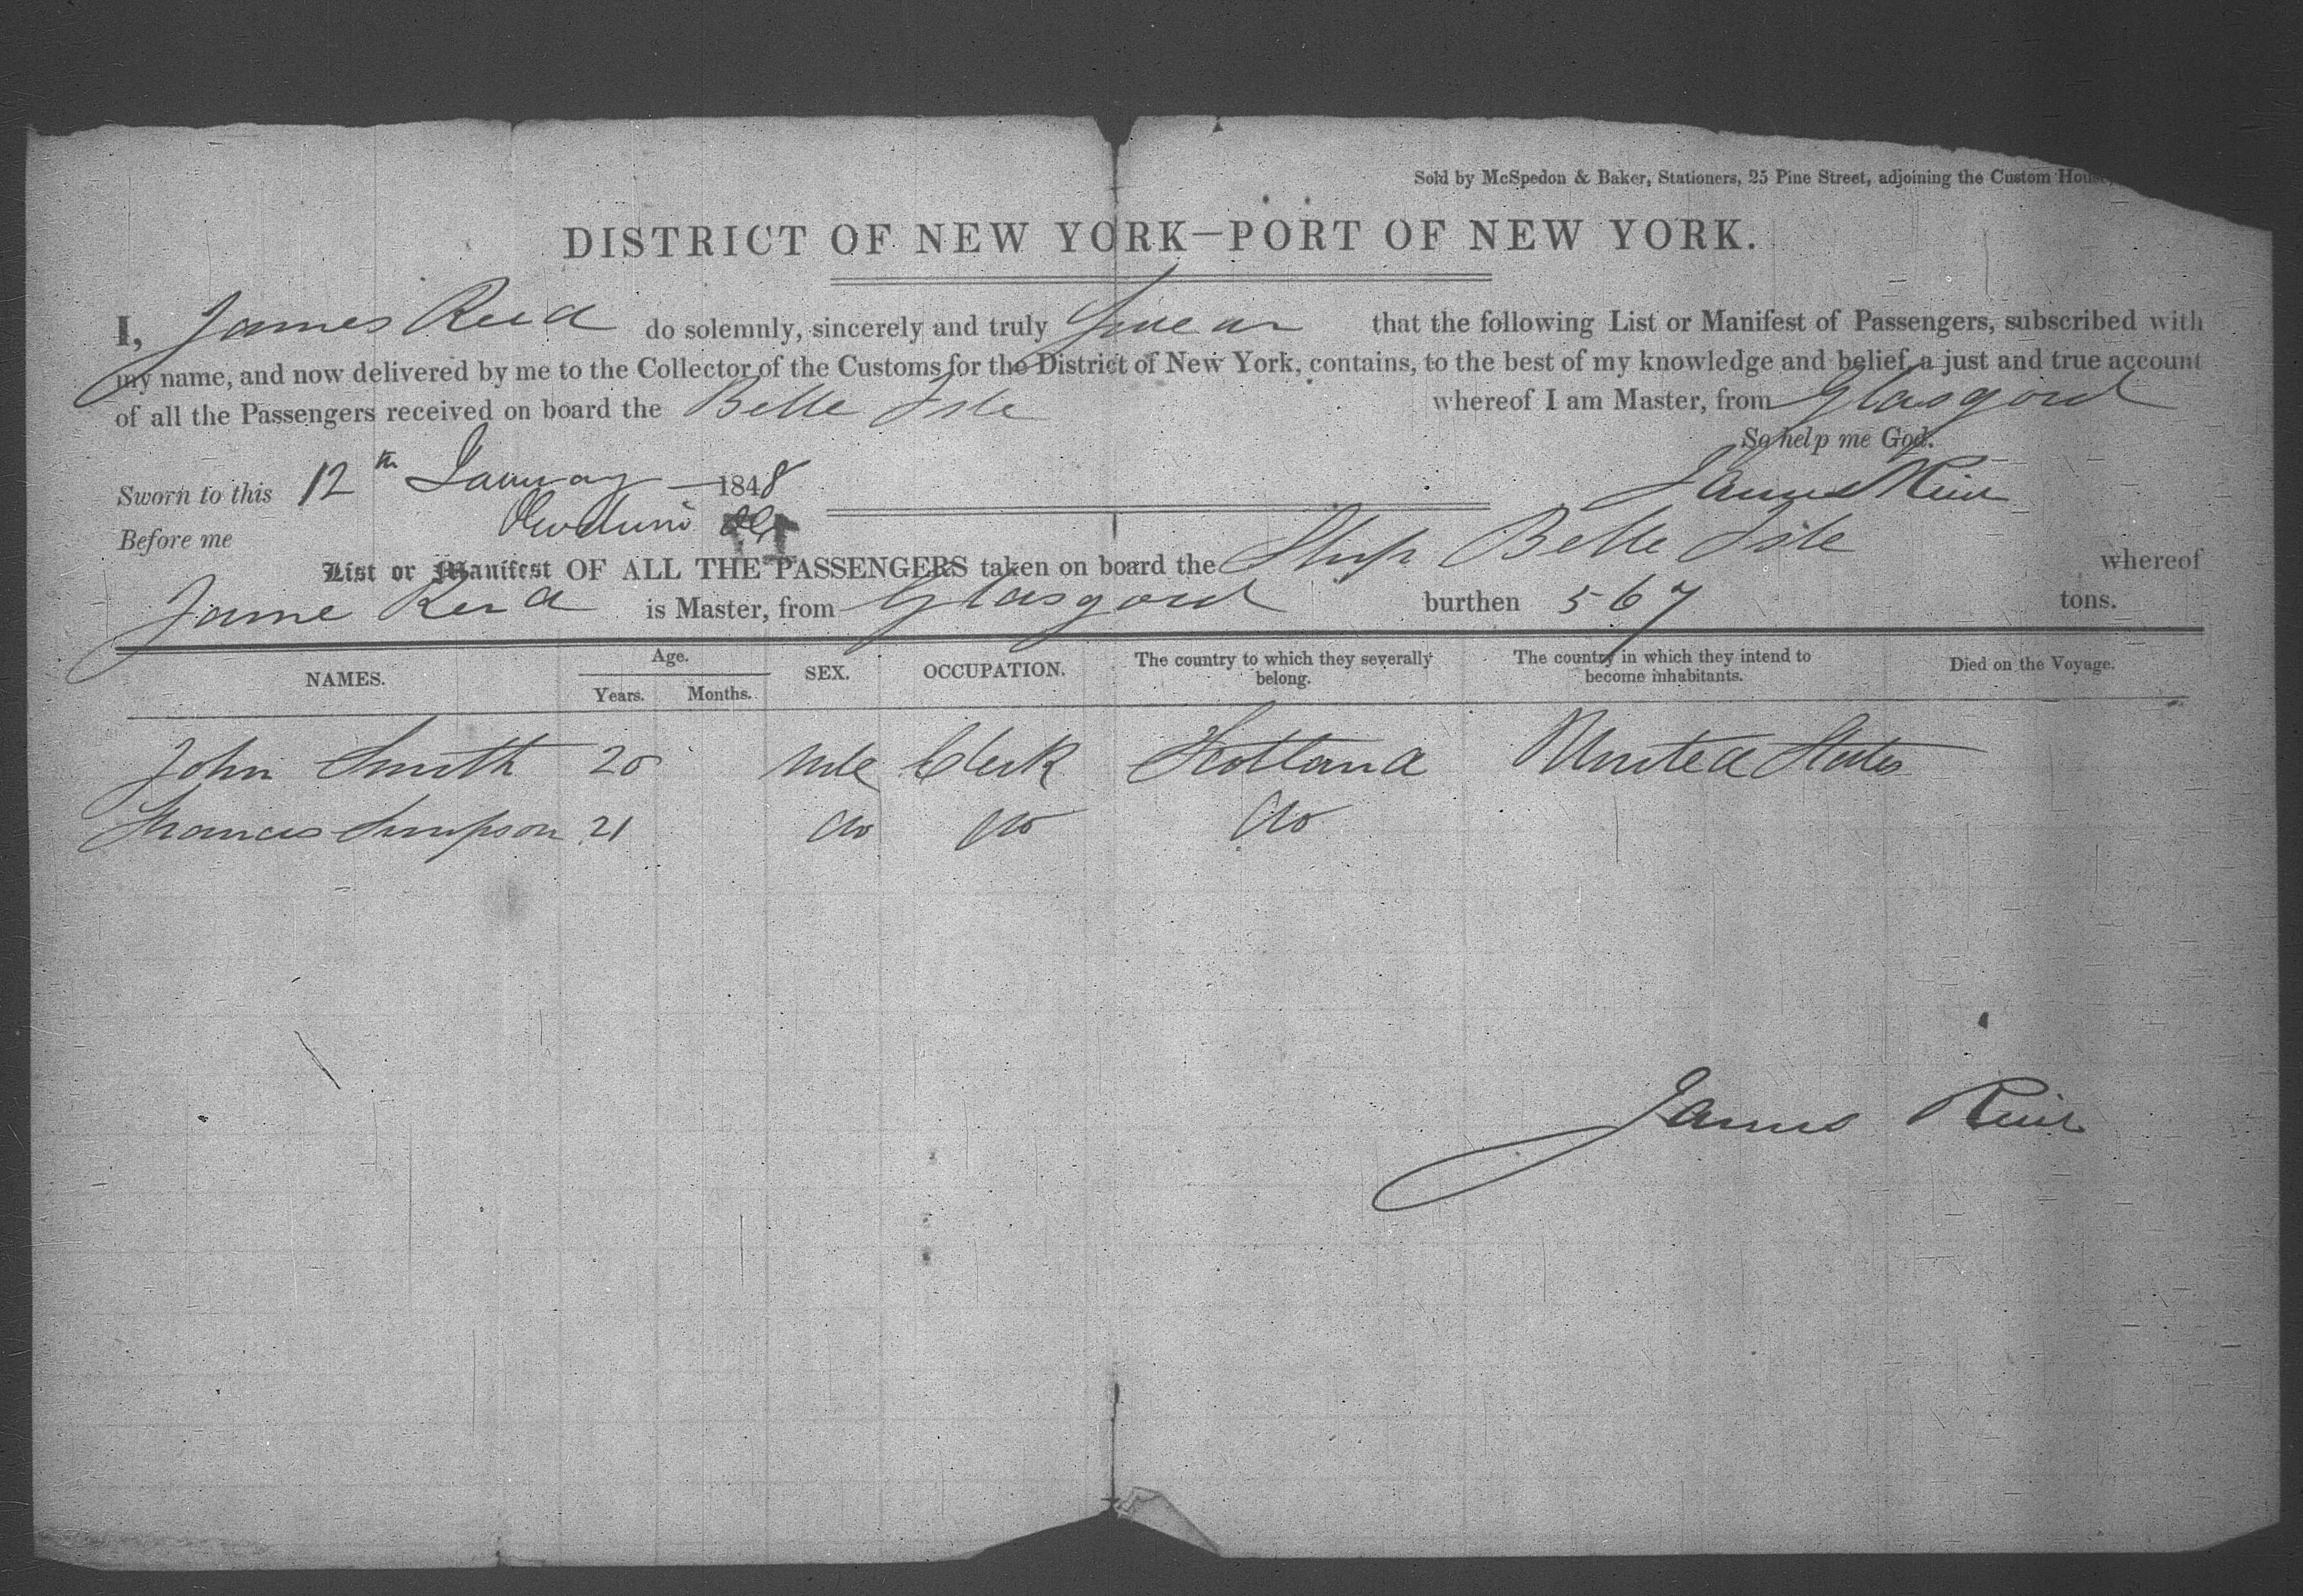 Sold by McSpedon & Baker, Stationers, 25 Pine Street, adjoining the Custom House
DISTRICT OF NEW YORK—PORT OF NEW YORK.
I, James Reid do solemnly, sincerely and truly Swear that the following List or Manifest of Passengers, subscribed with
my name, and now delivered by me to the Collector of the Customs for the District of New York, contains, to the best of my knowledge and belief, a just and true account
of all the Passengers received on board the Belle Isle whereof I am Master, from Glasgow
So help me God.
Sworn to this 12th January 1848 James Reid
Before me
List or Manifest OF ALL THE PASSENGERS taken on board the Ship Belle Isle whereof
Jame Reid is Master, from Glasgow burthen 567 tons.
NAMES. Age. Years. Months. SEX. OCCUPATION. The country to which they severally belong. The country in which they intend to become inhabitants. Died on the Voyage.
John Smith 20 Male Clerk Scotland United States
Francis Simpson 21 do do do
James Reid